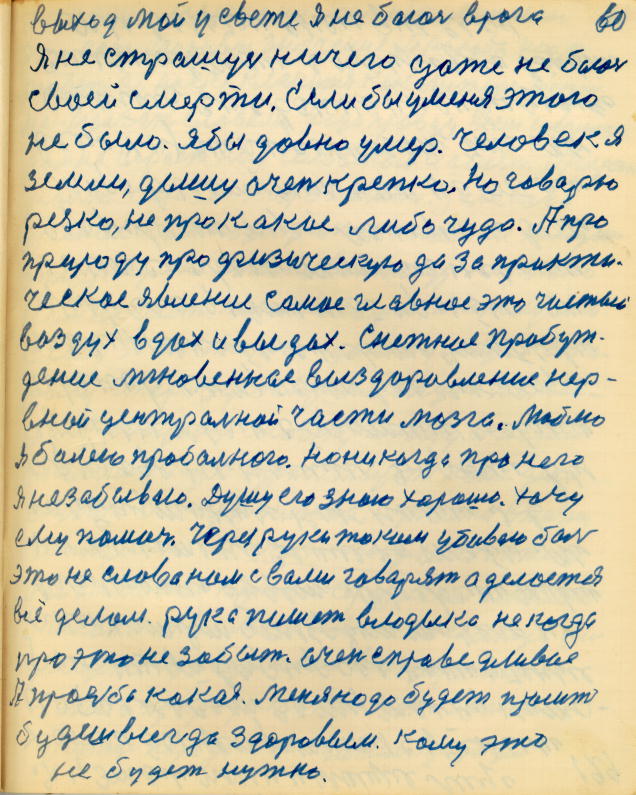 выход мой у свете я не баюсь врага 60
Я не страшуся ничего даже не баюсь
своей смерти. Если бы у меня этого
не было. я бы довно умер. Человек я
земли, дышу очен крепко. Но говарю
резко, не про какое либо чудо. А про
природу про физическую да за практи-
ческое явление самое главное это чистый
воздух вдох и выдох. Снежное пробуж-
дение мгновенное выздоровление нер-
вной централной части мозга. Люблю
я болею про балного. Но никогда про него
я не забываю. Душу его знаю хорошо. Хочу
ему помоч. Через руки током убиваю бол
это не слова нам с вами говарят а делается
всё делом. рука пишет владыка некогда
про это не забыт. очен справедливое
А прозба какая. Меня надо будет просить
будеш всегда здоровым. Кому это
не будет нужно.